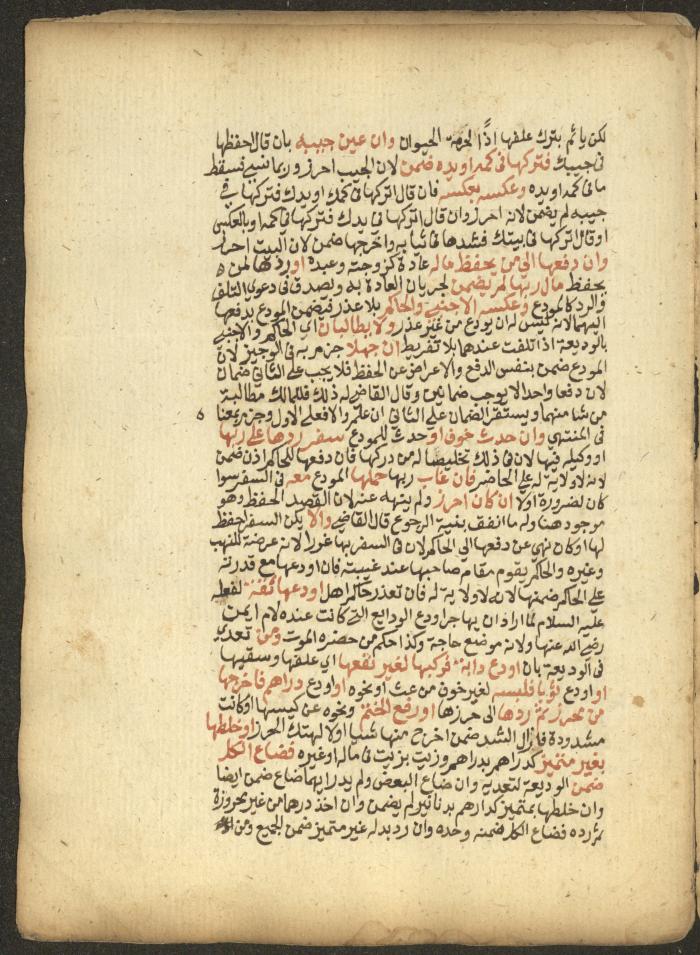 لكن يأثم بترك علفها اذًا لحرمة الحيوان وان عين جيبه بان قال احفظها
في جيبك فتركها في كمه او يده ضمن لان الجيب احرز وربما نسي فسقط
ما في كمه او يده وعكسه بعكسه فان قال اتركها في كمك او يدك فتركها في
جيبه لم يضمن لانه احرز وان قال اتركها في يدك فتركها في كمه او بالعكس
او قال اتركها في بيتك فشدها في ثيابه واخرجها ضمن لان البيت احرز
وان دفعها الى من يحفظ ماله عادة كزوجته وعبده او ردها لمن
يحفظ مال ربها لم يضمن لجريان العادة به ويصدق في دعوى التلف
والرد كالمودع وعكسه الاجنبي والحاكم بلا عذر فيضمن المودع بدفعها
اليهما لانه ليس له ان يودع من غير عذر ولا يطالبان اي الحاكم والاجنبي
بالوديعة اذا تلفت عندهما بلا تفريط ان جهلا جزم به في الوجيز لان
المودع ضمن بنفس الدفع والاعراض عن الحفظ فلا يجب على الثاني ضمان
لان دفعا واحدا لا يوجب ضمانين وقال القاضي له ذلك فللمالك مطالبة
من شا منهما ويستقر الضمان على الثاني ان علم والا فعلى الاول وجزم بمعناه
في المنتهى وان حدث خوف او حدث للمودع سفر ردها على ربها
او وكيله فيها لان في ذلك تخليصا له من دركها فان دفعها للحاكم اذن ضمن
لانه لا ولاية له على الحاضر فان غاب ربها حملها المودع معه في السفر سوا
كان لضرورة اولا ان كان احرز ولم ينهه عنه لان القصد الحفظ وهو
موجود هنا وله ما انفق بنية الرجوع قال القاضي والا يكن السفر احفظ
لها او كان نهى عن دفعها الى الحاكم لان في السفر بها غررا لانه عرضة للنهب
وغيره والحاكم يقوم مقام صاحبها عند غيبته فان اودعها مع قدرته
على الحاكم ضمنها لانه لا ولاية له فان تعذر حاكم اهل اودعها ثقة لفعله
عليه السلام لما اراد ان يهاجر اودع الودايع التي كانت عنده لام ايمن
رضي الله عنها ولانه موضع حاجة وكذا حكم من حضره الموت ومن تعدى
في الوديعة بان اودع دابة فركبها لغير نفعها اي علفها وسقيها
او اودع ثوبا فلبسه لغير خوف من عث او نحوه او اودع دراهم فاخرجها
من محرز ثم ردها الى حرزها او رفع الختم ونحوه عن كيسها او كانت
مشدودة فازال الشد ضمن اخرج منها شيا اولا لهتك الحرز او خلطها
بغير متميز كدراهم بدراهم وزيت بزيت في ماله او غيره فضاع الكل
ضمن الوديعة لتعديه وان ضاع البعض ولم يدر ايهما ضاع ضمن ايضا
وان خلطها بمتميز كدراهم بدنانير لم يضمن وان اخذ درهما من غير محرزة
ثم رده فضاع الكل ضمنه وحده وان رد بدله غير متميز ضمن الجميع ومن